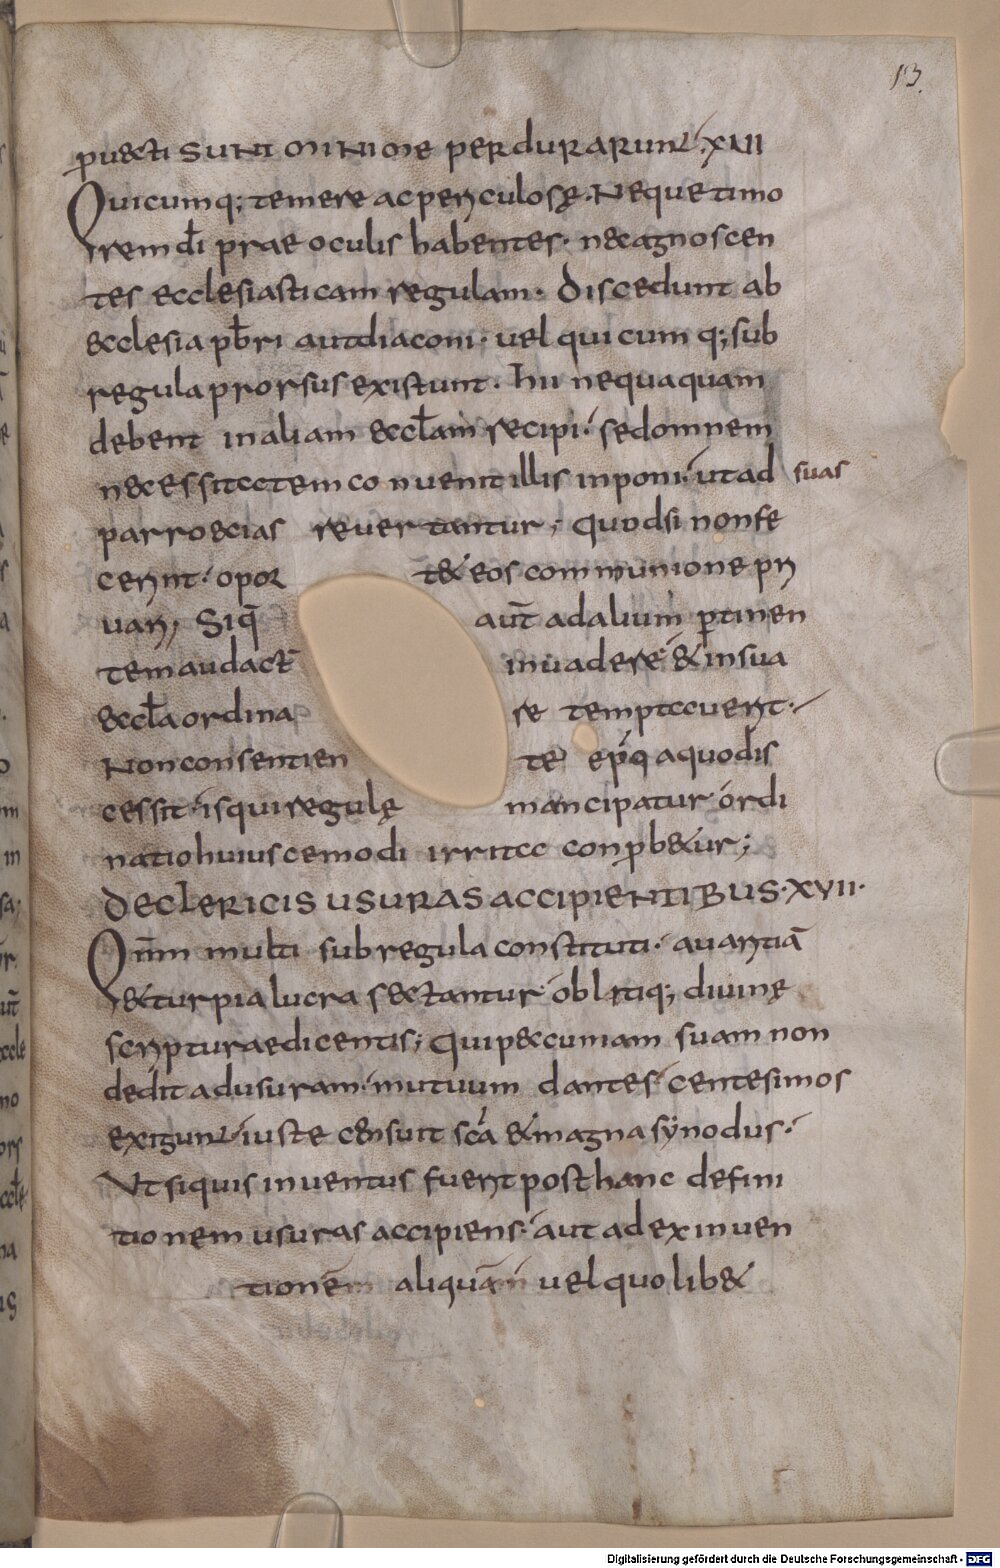 13.
puecti sunt minime perdurarunt; xvi
Quicumq; temere ac periculosę. Neque timo
rem di prae oculis habentes. nec agnoscen
tes ecclesiasticam regulam. Discedunt ab
ecclesia pbri aut diaconi. uel qui cum q; sub
regula prorsus existunt. hii nequaquam
debent in aliam ecclam recipi. sed omnem
necessitatem conuenit illis inponi. ut ad suas
parroecias reuertantur; Quod si non fe
cerint. opor tet eos communione pri
uari; Siq aut ad alium ptinen
tem audact inuadere & in sua
eccla ordina re temptauerit.
Non consentien te epo a quo dis
cessit. is qui regulę mancipatur ordi
natio huiuscemodi irrita conpbetur;
DE CLERICIS USURAS ACCIPIENTIBUS. XVII.
Qnm multi sub regula constituti. auaritiā
& turpia lucra sectantur oblitiq; diuinę
scripturae dicentis; Qui pecuniam suam non
dedit ad usuram. mutuum dantes centesimos
exigunt iuste censuit sca & magna synodus.
Ut si quis inuentus fuerit post hanc defini
tionem usuras accipiens. aut ad ex inuen
tionem aliquam uel quolibet
Digitalisierung gefördert durch die Deutsche Forschungsgemeinschaft - DFG